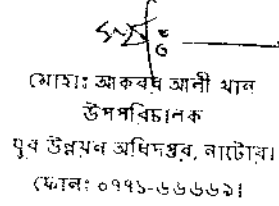 মোহাঃ আকবর আলী খান
উপপরিচালক
যুব উন্নয়ন অধিদপ্তর, নাটোর।
ফোনঃ ০৭৭১-৬৬৬৬৯।